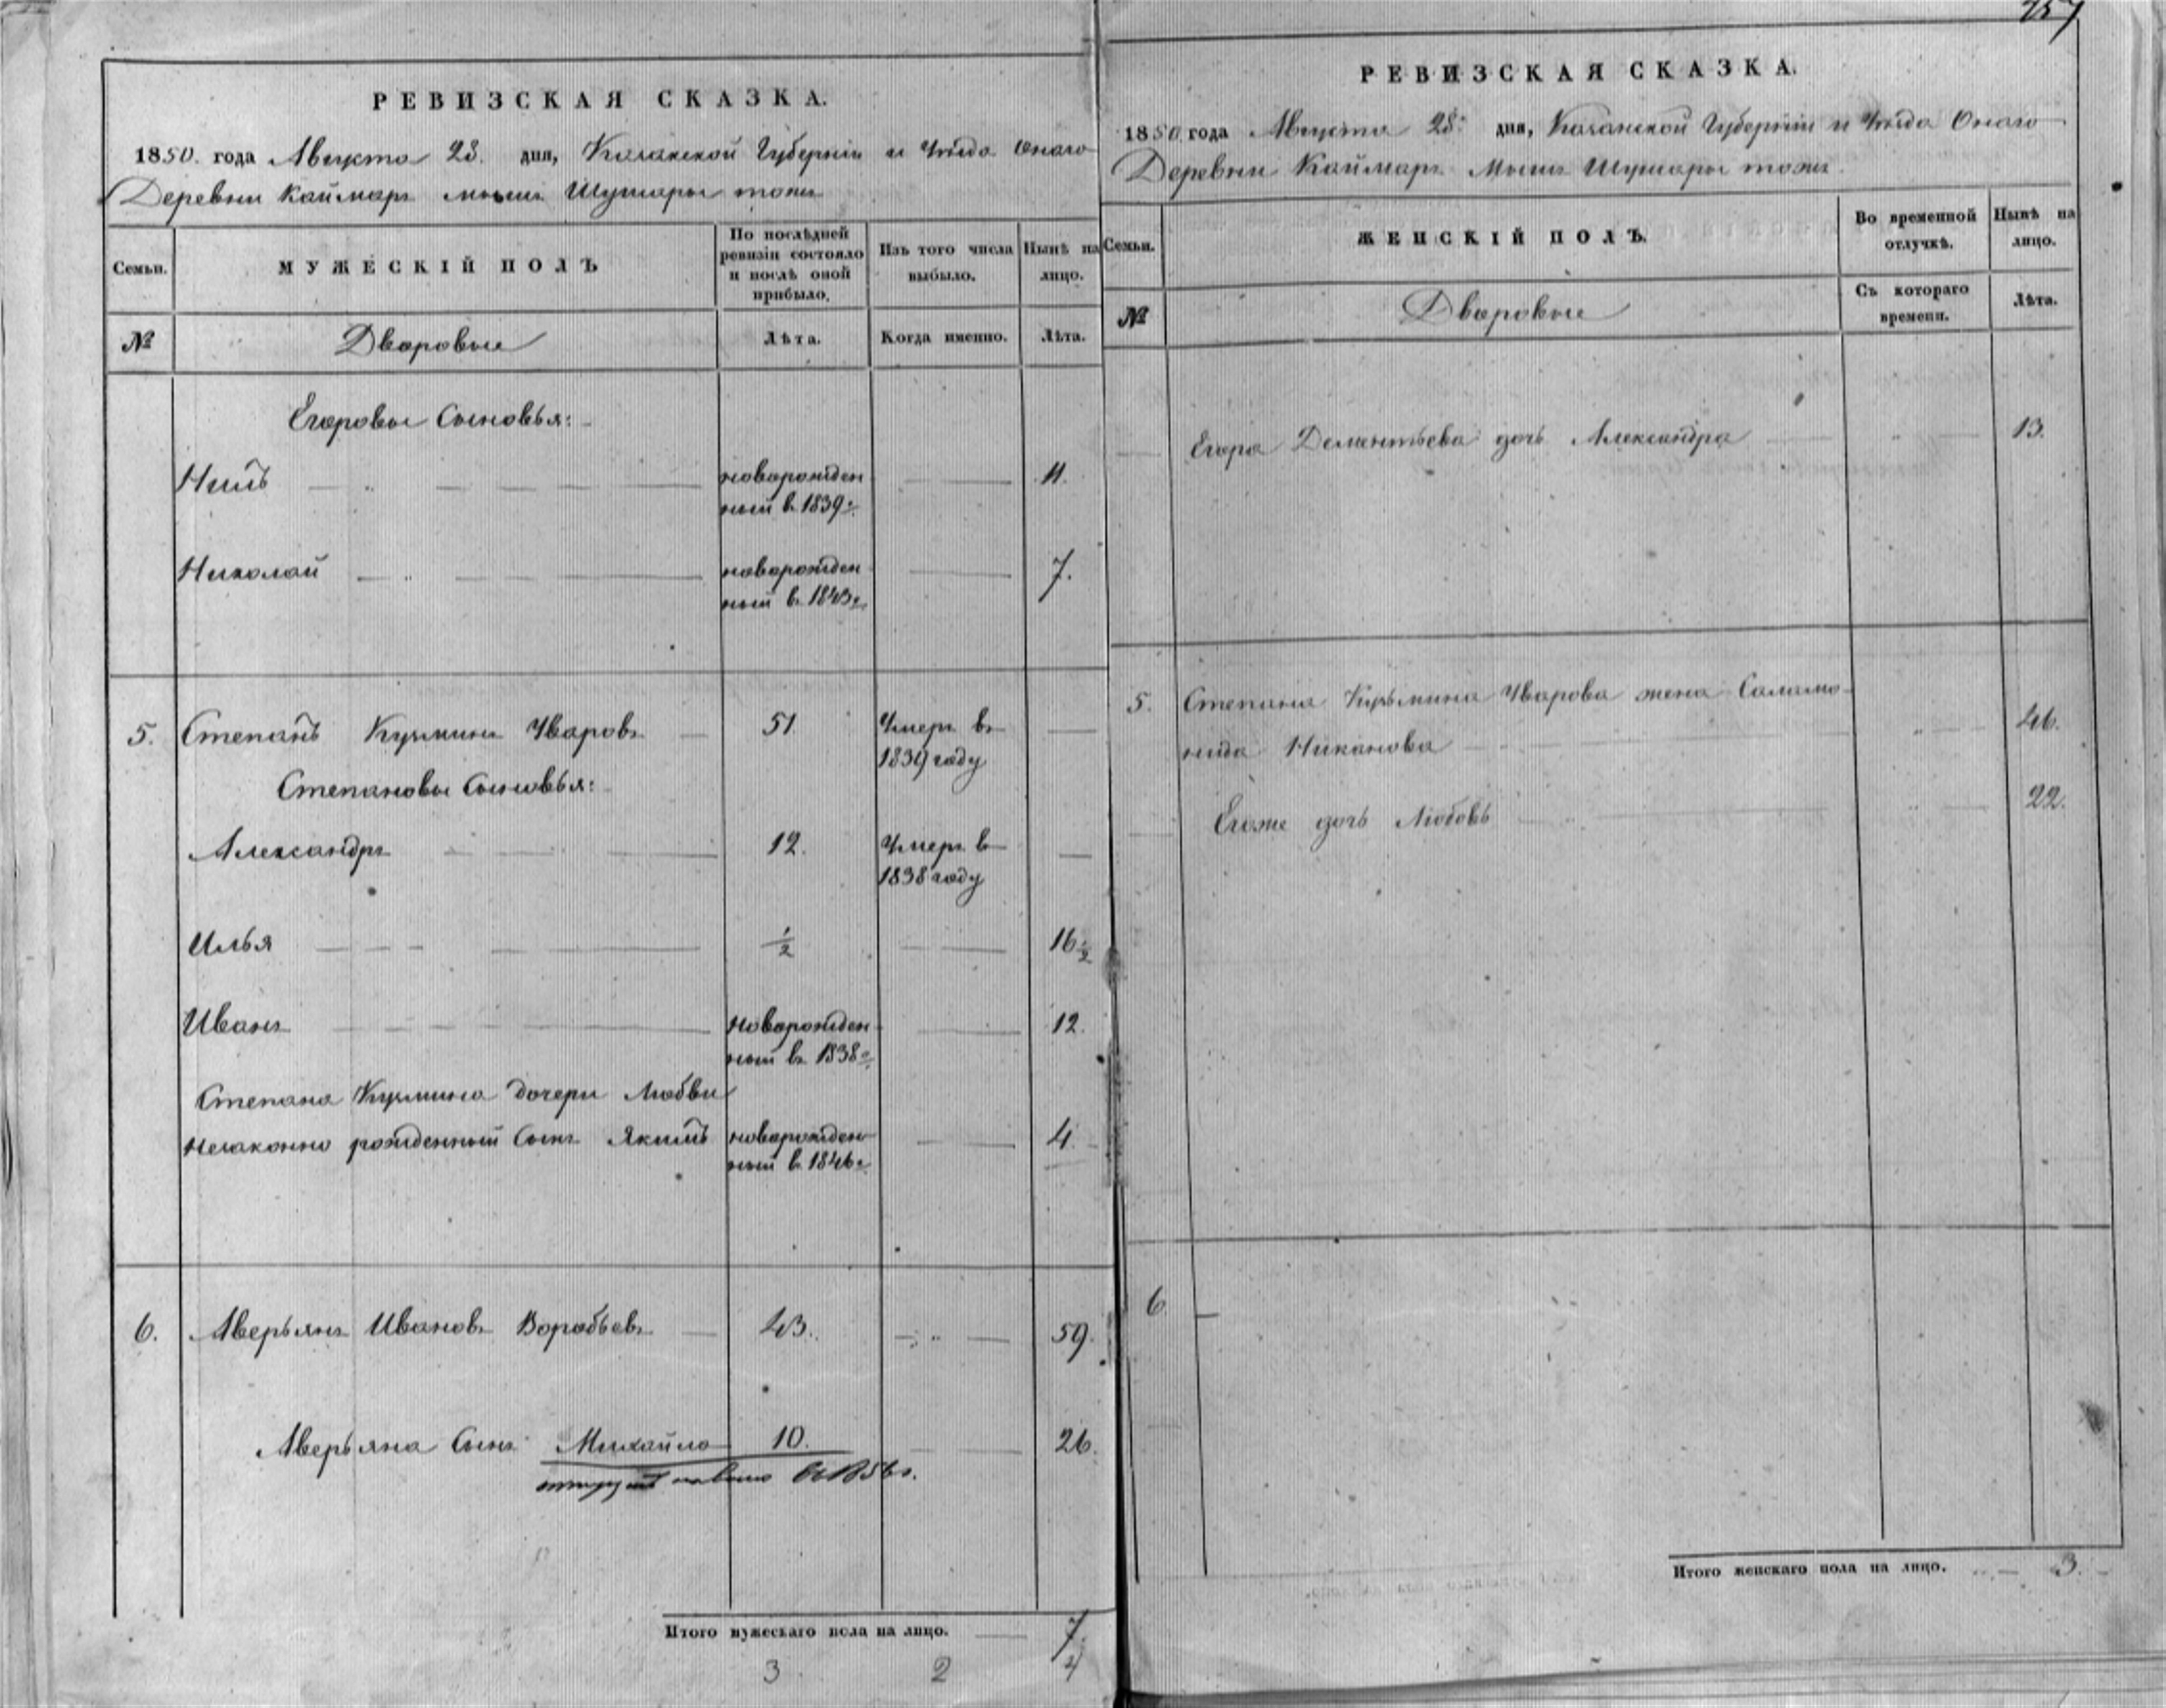 РЕВИЗСКАЯ СКАЗКА.
1850. года Августа 28. дня, Казанской Губерніи и Уѣзда Онаго
Деревни Каймаръ Шушары тожъ
Семьи.
МУЖЕСКІЙ ПОЛЪ
По послѣдней
ревизіи состояло
и послѣ оной
прибыло.
Изъ того числа
выбыло.
Нынѣ на
лицо.
№
Дворовые
Лѣта.
Когда именно.
Лѣта.
Егоровы Сыновья:
Нилъ новорожден 11.
ный в. 1839 г.
Николай новорожден 7.
ный в. 1843 г.
5. Степанъ Кузминъ Уваровъ 51. Умеръ въ
1839 году
Степановы Сыновья:
Александръ 12. Умеръ в
1838 году
Илья 1/2 16 1/2
Иванъ новорожден 12.
ный въ 1838 г.
Степана Кузмина дочери Любви
Незаконно рожденный Сынъ Якимъ новорожден 4.
ный в. 1846 г.
6. Аверьянъ Ивановъ Воробьевъ 43. 59.
Аверьяна Сынъ Михайло 10. 26.
1856 г.
Итого мужескаго пола на лицо. 7.
3 2 4
157
РЕВИЗСКАЯ СКАЗКА.
1850. года Августа 28. дня, Казанской Губерніи и Уѣзда Онаго
Деревни Каймаръ Шушары тожъ.
Семьи.
ЖЕНСКІЙ ПОЛЪ.
Во временной
отлучкѣ.
Нынѣ на
лицо.
№
Дворовые
Съ котораго
времени.
Лѣта.
Егора Дементьева дочь Александра 13.
5. Степана Кузьмина Уварова жена Саламо-
нида Никонова 46.
Егоже дочь Любовь 22.
6
Итого женскаго пола на лицо. 3.